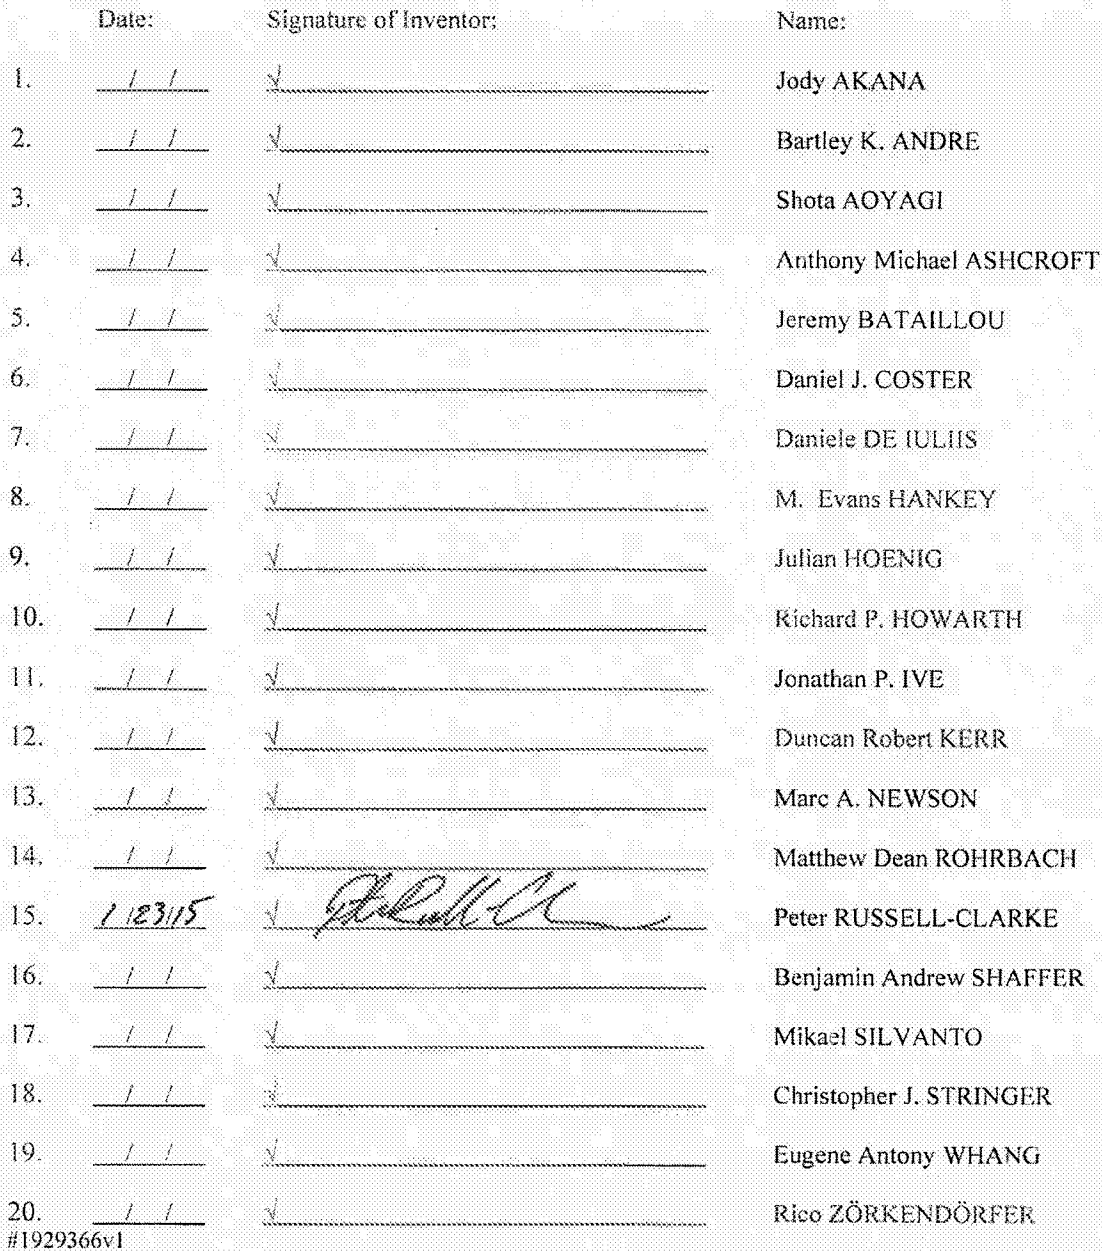 Date: Signature of Inventor: Name:
1. / / √ Jody AKANA
2. / / √ Bartley K. ANDRE
3. / / √ Shota AOYAGI
4. / / √ Anthony Michael ASHCROFT
5. / / √ Jeremy BATAILLOU
6. / / √ Daniel J. COSTER
7. / / √ Daniele DE IULIIS
8. / / √ M. Evans HANKEY
9. / / √ Julian HOENIG
10. / / √ Richard P. HOWARTH
11. / / √ Jonathan P. IVE
12. / / √ Duncan Robert KERR
13. / / √ Marc A. NEWSON
14. / / √ Matthew Dean ROHRBACH
15. 1/23/15 √ Peter RUSSELL-CLARKE
16. / / √ Benjamin Andrew SHAFFER
17. / / √ Mikael SILVANTO
18. / / √ Christopher J. STRINGER
19. / / √ Eugene Antony WHANG
20. / / √ Rico ZÖRKENDÖRFER
#1929366v1